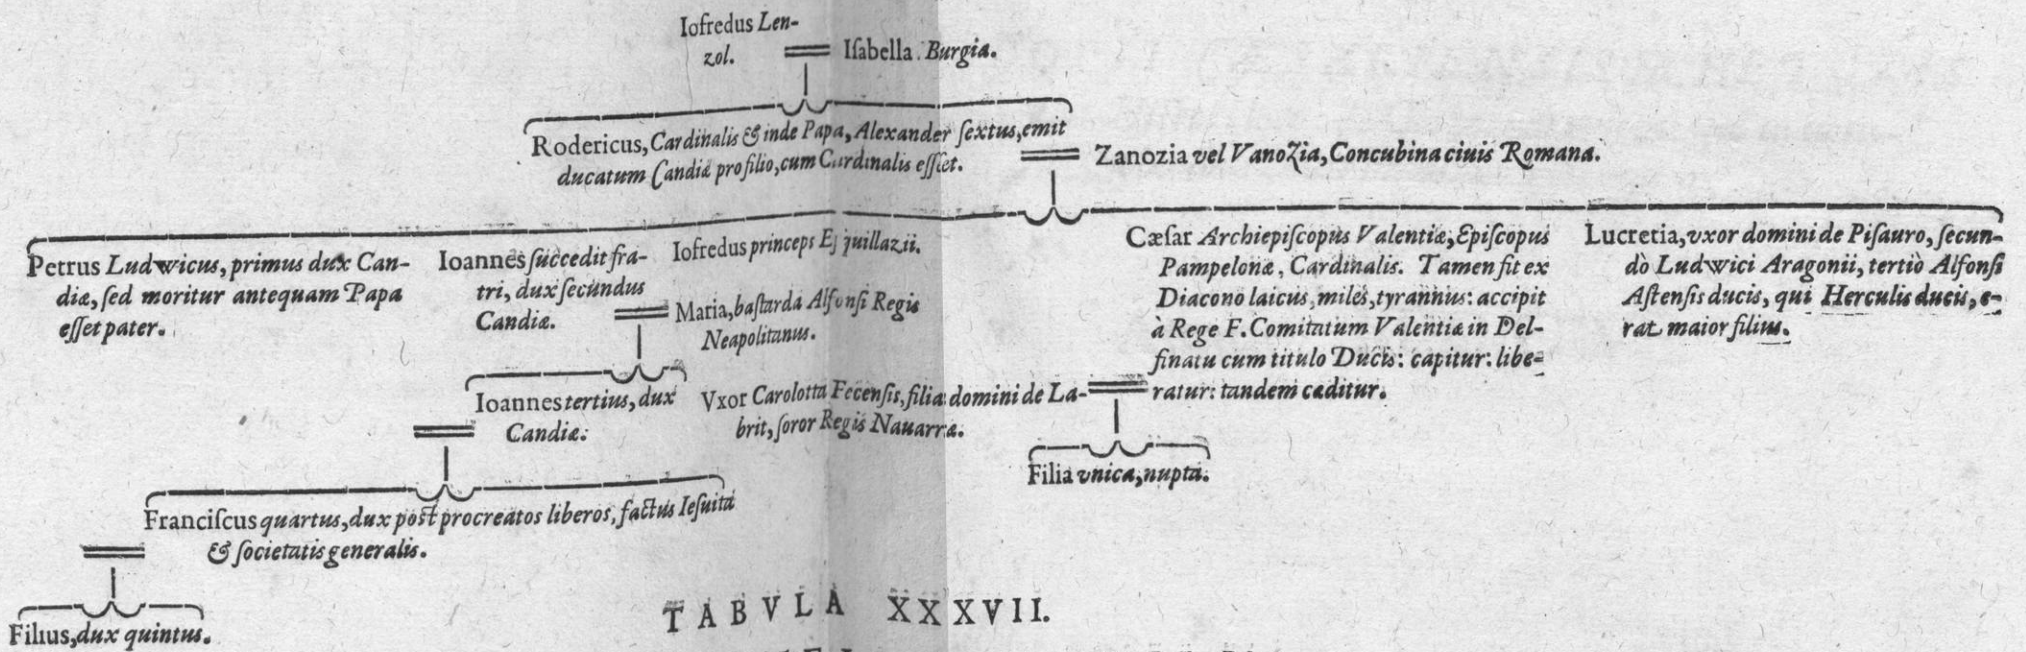 Iofredus Len-
zol.
Iſabella Burgia.
Rodericus, Cardinalis & inde Papa, Alexander ſextus, emit
ducatum Candiæ pro filio, cum Cardinalis eſſet.
Zanozia vel Vanozia, Concubina ciuis Romana.
Petrus Ludwicus, primus dux Can-
diæ, ſed moritur antequam Papa
eſſet pater.
Ioannes ſuccedit fra-
tri, dux ſecundus
Candiæ.
Iofredus princeps
Maria, baſtarda Alfonſi Regis
Neapolitanus.
Cæſar Archiepiſcopus Valentiæ, Epiſcopus
Pampelonæ, Cardinalis. Tamen fit ex
Diacono laicus, miles, tyrannus: accipit
à Rege F. Comitatum Valentiæ in Del-
finatu cum titulo Ducis: capitur: libe-
ratur: tandem cæditur.
Lucretia, vxor domini de Piſauro, ſecun-
dò Ludwici Aragonii, tertiò Alfonſi
Aſtenſis ducis, qui Herculis ducis, e-
rat maior filius.
Ioannes tertius, dux
Candiæ.
Vxor Carolotta Fecenſis, filia domini de La-
brit, ſoror Regis Nauarræ.
Filia vnica, nupta.
Franciſcus quartus, dux poſt procreatos liberos, factus Ieſuita
& ſocietatis generalis.
Filius, dux quintus.
TABVLA XXXVII.